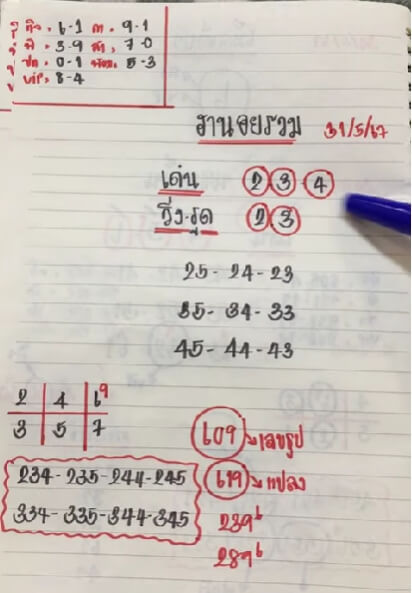 กิจ. 6-1 ภ. 9-1
พี. 3-9 สา. 7-0
ปก. 0-1 พิเศษ. 5-3
VIP. 8-4
ฮานอยรวม 31/5/67
เด่น 2 3 4
วิ่ง-รูด 2 3
25 - 24 - 23
35 - 34 - 33
45 - 44 - 43
2 4 6 9
3 5 7
609 → เลขรูป
234 - 235 - 244 - 245
619 → แปลง
334 - 335 - 344 - 345
239 6
289 6